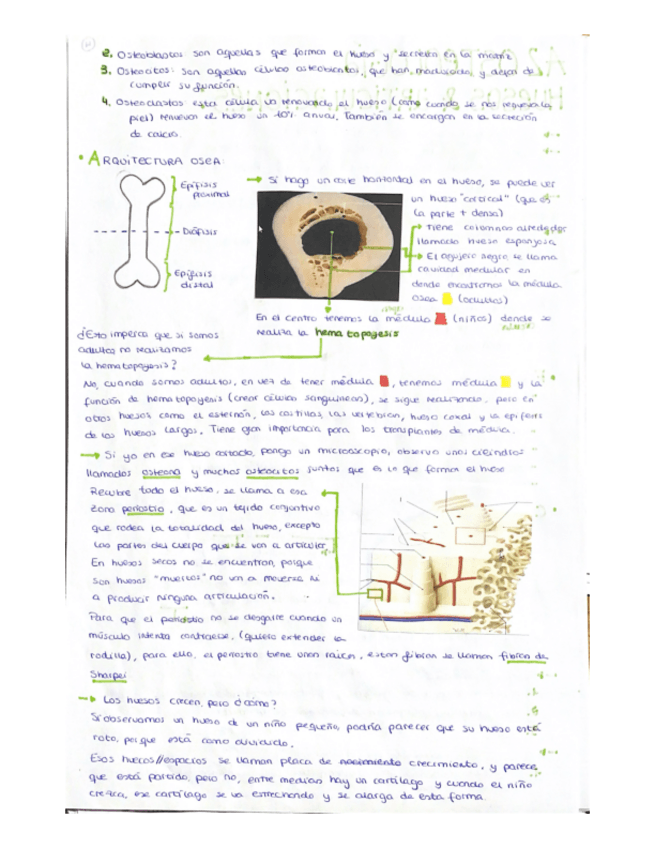 2. Osteoblastos son aquellas que forman el hueso y secretan en la matriz.
3. Osteocitos: son aquellas células osteoblastos, que han madurado, y dejan de
cumplir su función.
4. Osteoclastos esta célula va renovando el hueso (como cuando se nos renueva la
piel) renuevan el hueso un 10% anual. También se encargan en la secreción
de calcio.
• ARQUITECTURA OSEA:
Epífisis
proximal
Diáfisis
Epífisis
distal
→ Si hago un corte horizontal en el hueso, se puede ver
un hueso "cortical" (que es
la parte + densa)
→ Tiene columnas alrededor
llamado hueso esponjosa
→ El agujero negro, se llama
cavidad medular en
donde encontramos la médula
ósea (adultos)
En el centro tenemos la médula (niños) donde se
realiza la hematopoyesis
¿Esto implica que si somos
adultos no realizamos
la hematopoyesis?
No, cuando somos adultos, en vez de tener médula , tenemos médula y la
función de hematopoyesis (crear células sanguíneas), se sigue realizando, pero en
otros huesos como el esternón, las costillas, las vértebras, hueso coxal y la epífisis
de los huesos largos. Tiene gran importancia para los transplantes de médula.
→ Si yo en ese hueso cortado, pongo un microscopio, observo unos cilindros
llamados osteona y muchos osteocitos juntos que es lo que forman el hueso
Recubre todo el hueso, se llama a esa
zona periostio, que es un tejido conjuntivo
que rodea la totalidad del hueso, excepto
las partes del cuerpo que se van a articular
En huesos secos no se encuentran, porque
son huesos "muertos" no van a moverse ni
a producir ninguna articulación.
Para que el periostio no se desgarre cuando un
músculo intenta contraerse, (quiero extender la
rodilla), para ello, el periostio tiene unas raíces, estas fibras se llaman fibras de
Sharpei
→ Los huesos crecen, pero ¿cómo?
Si observamos un hueso de un niño pequeño, podría parecer que su hueso está
roto, porque está como dividido.
Esos huecos//espacios se llaman placa de crecimiento, y parece
que está partido, pero no, entre medias hay un cartílago y cuando el niño
crezca, ese cartílago se va estrechando y se alarga de esta forma.